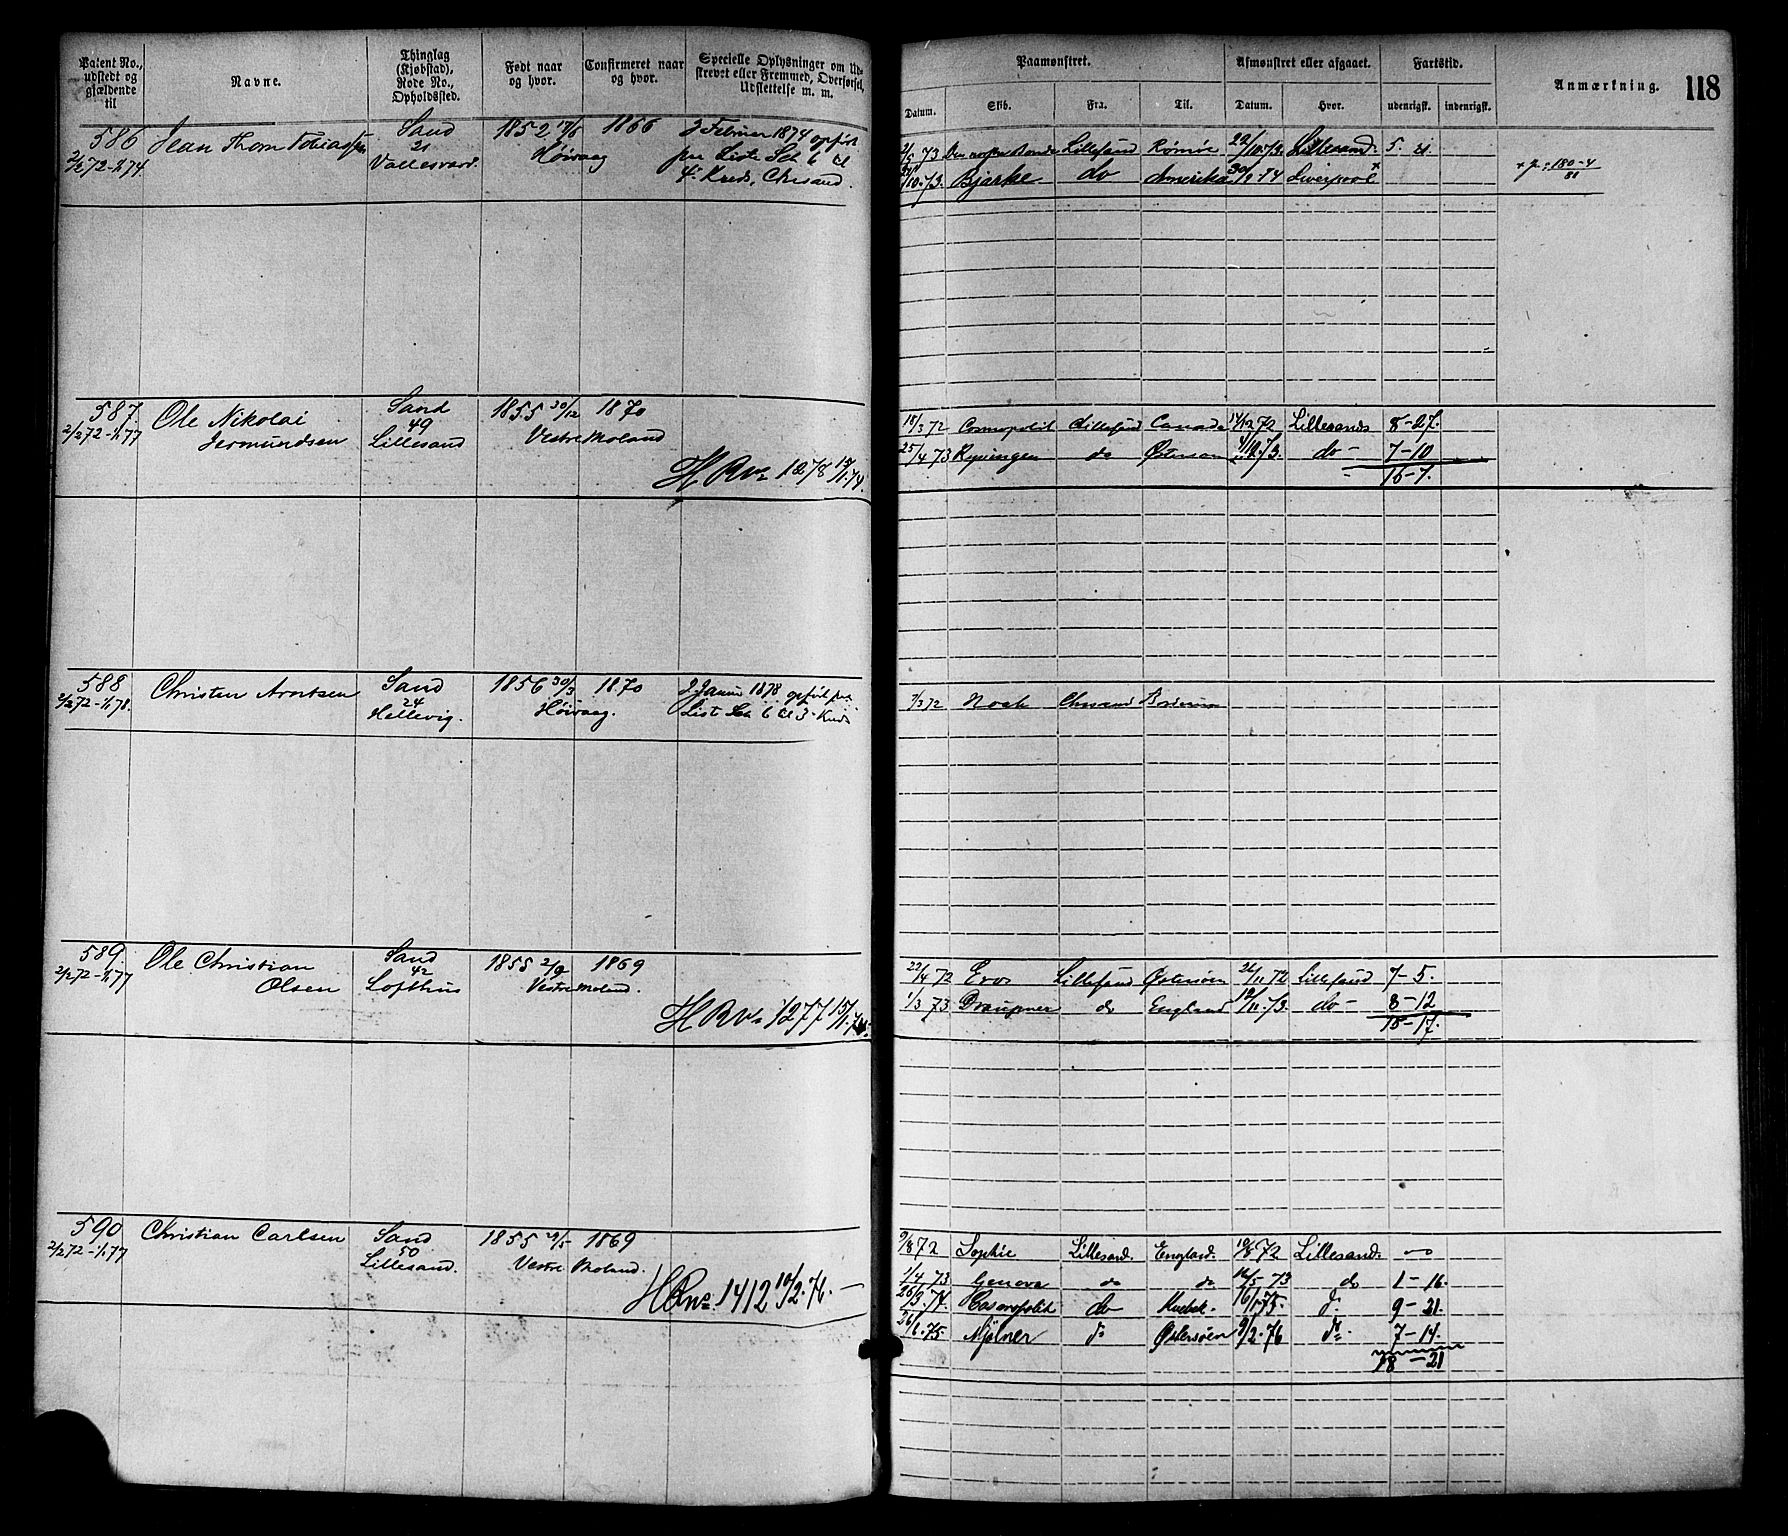 118
Patent No., udstedt og gjældende til
Navne.
Thinglag (Kjøbstad), Rode No., Opholdssted.
Født naar og hvor.
Confirmeret naar og hvor.
Specielle Oplysninger om Udstrevet eller Fremmed, Overførsel, Udslettelse m. m.
Paamønstret.
Afmønstret eller afgaaet.
Fartstid.
Anmærkning.
Datum. Skib. Fra. Til. Datum. Hvor. udenrigsk. indenrigsk.
586 Jean Thom Tobiassen Sand 1852 17/6 1866 3 Februar 1874 opført
2/2 72-1/1 74 21 Vallesværd. Høivaag paa Liste Litr 6 til
4. Kreds, Chrsand.
2/5 73 Lillesand 22/10 73 Lillesand 5.
/10. 73. Bjarke do Amerika 30/ 74 Liverpool x
587 Ole Nikolai Sand 1855 30/12 1870
2/2 72-1/1 77 Jermundsen 49 Lillesand Vestre Moland
H R No 1278 15/1. 74.
18/3 72 Cosmopolit Lillesand Canada 14/12 72 Lillesand 8-27.
25/4 73 do Østersøen 73. do - 7-10
16-7.
588 Christen Arntsen Sand 1856 30/3 1870 2 Januar 1878 opført paa
2/2 72-1/1 78. 24 Hellevig. Høivaag. Liste Litr 6 til 3. Kreds
7/3 72 Noah Chrsand
589. Ole Christian Sand 1855 2/9 1869
2/2 72-1/1 77 Olsen 42 Lofthus Vestre Moland.
H R No 1277 15/1.
22/4 72 Eros Lillesand Østersøen 72 Lillesand 7-5.
1/3 73 Draupner do England /11. 73. do - 8-12
15-17.
590 Christian Carlsen Sand 1855 1869
2/2 72-1/1 77 50 Lillesand. Vestre Moland.
H R No 1412 10/2. 76. -
9/8 72 Sophie Lillesand. England. 72 Lillesand.
1/4 73 Genova do do 16/5 73 do 1-16.
26/3. 74. Cosmopolit do 75. do 9-21.
75. Mjølner do Østersøen 9/2. 76 do. 7-14.
18-21